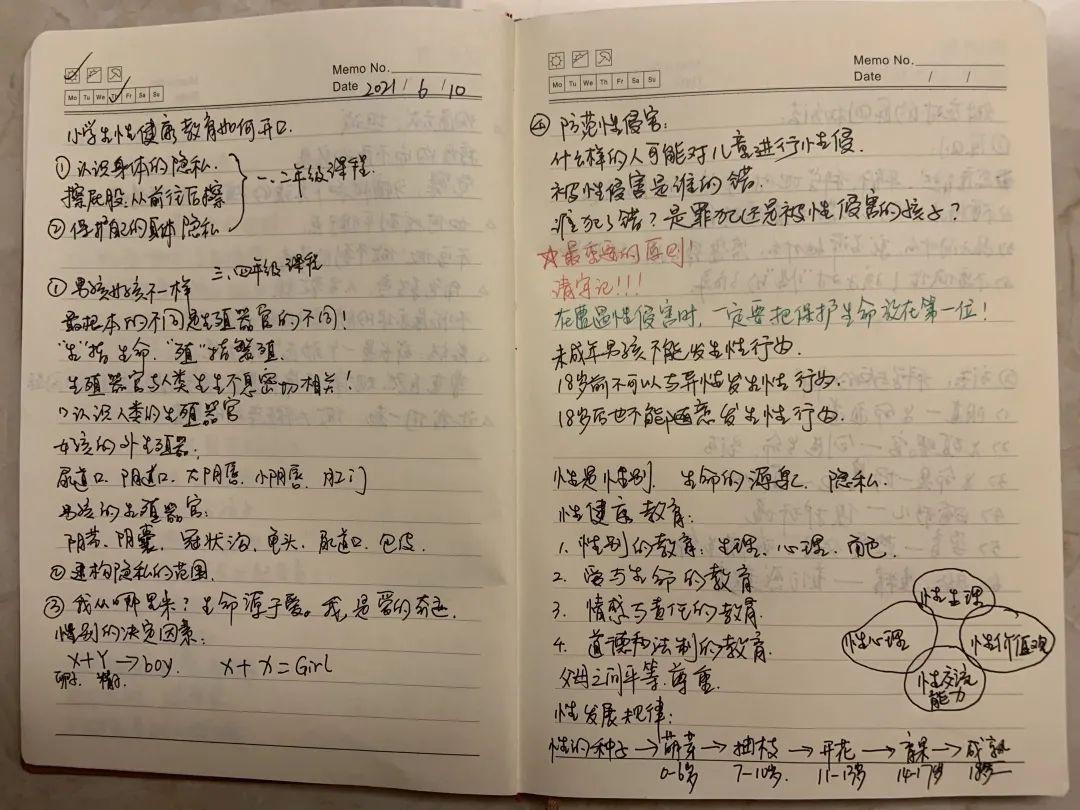 Memo No.
Mo Tu We Th Fr Sa Su
Date 2021 / 6 / 10
小学生性健康教育如何开口.
① 认识身体的隐私.
擦屁股从前往后擦
② 保护自己的身体隐私
一、二年级课程.
三、四年级课程
① 男孩女孩不一样
最根本的不同是生殖器官的不同!
"生"指生命,"殖"指繁殖.
生殖器官与人类生生不息密切相关!
认识人类的生殖器官
女孩的外生殖器:
尿道口、阴道口、大阴唇、小阴唇、肛门
男孩的生殖器官:
阴茎、阴囊、冠状沟、龟头、尿道口、包皮.
② 建构隐私的范围.
③ 我从哪里来?生命源于爱。我是爱的奇迹.
性别的决定因素:
X+Y→boy. X+X=Girl
卵子 精子
Memo No.
Mo Tu We Th Fr Sa Su
Date / /
④ 防范性侵害:
什么样的人可能对儿童进行性侵.
被性侵害是谁的错.
谁犯了错?是罪犯还是被性侵害的孩子?
☆最重要的原则
请牢记!!!
在遭遇性侵害时,一定要把保护生命放在第一位!
未成年男孩不能发生性行为.
18岁前不可以与异性发生性行为.
18岁后也不能随意发生性行为.
性是性别、生命的源泉、隐私.
性健康教育:
1. 性别的教育:生理、心理、
2. 爱与生命的教育
3. 情感与责任的教育.
4. 道德和法制的教育.
父母之间平等、尊重.
性生理
性心理
性价值观
性交流能力
性发展规律:
性的种子→萌芽→抽枝→开花→育果→成熟
0-6岁 7-10岁. 11-13岁 14-17岁 18岁—